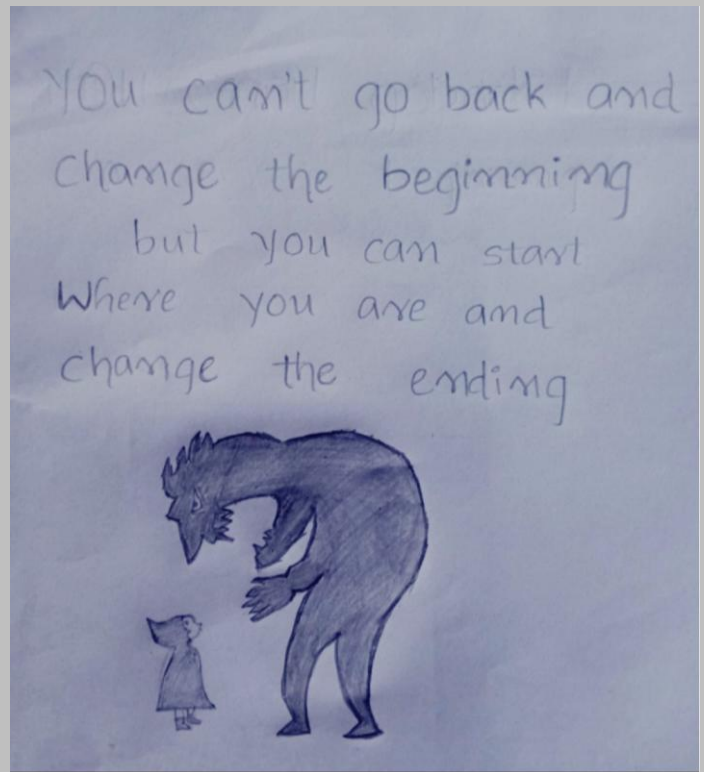 You can't go back and
change the beginning
but you can start
Where you are and
change the ending